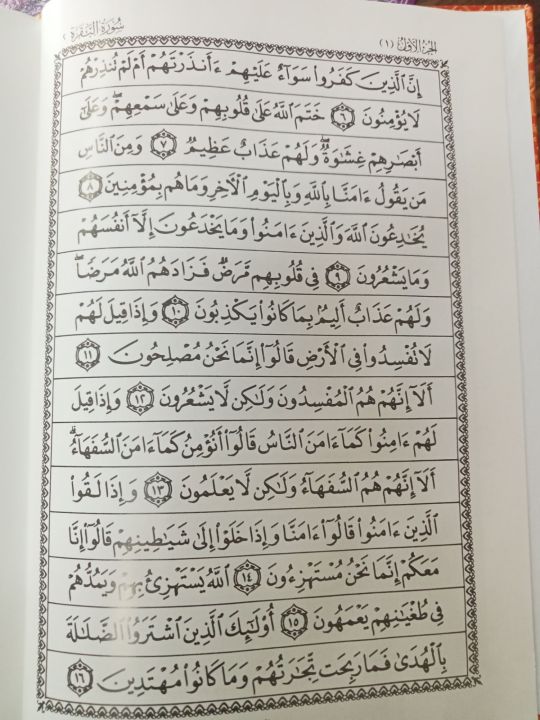 الجزء الأول (١) سورة البقرة ٢
إِنَّ ٱلَّذِينَ كَفَرُوا۟ سَوَآءٌ عَلَيْهِمْ ءَأَنذَرْتَهُمْ أَمْ لَمْ تُنذِرْهُمْ
لَا يُؤْمِنُونَ ٦ خَتَمَ ٱللَّهُ عَلَىٰ قُلُوبِهِمْ وَعَلَىٰ سَمْعِهِمْ ۖ وَعَلَىٰٓ
أَبْصَٰرِهِمْ غِشَٰوَةٌ ۖ وَلَهُمْ عَذَابٌ عَظِيمٌ ٧ وَمِنَ ٱلنَّاسِ
مَن يَقُولُ ءَامَنَّا بِٱللَّهِ وَبِٱلْيَوْمِ ٱلْءَاخِرِ وَمَا هُم بِمُؤْمِنِينَ ٨
يُخَٰدِعُونَ ٱللَّهَ وَٱلَّذِينَ ءَامَنُوا۟ وَمَا يَخْدَعُونَ إِلَّآ أَنفُسَهُمْ
وَمَا يَشْعُرُونَ ٩ فِى قُلُوبِهِم مَّرَضٌ فَزَادَهُمُ ٱللَّهُ مَرَضًا ۖ
وَلَهُمْ عَذَابٌ أَلِيمٌۢ بِمَا كَانُوا۟ يَكْذِبُونَ ١٠ وَإِذَا قِيلَ لَهُمْ
لَا تُفْسِدُوا۟ فِى ٱلْأَرْضِ قَالُوٓا۟ إِنَّمَا نَحْنُ مُصْلِحُونَ ١١
أَلَآ إِنَّهُمْ هُمُ ٱلْمُفْسِدُونَ وَلَٰكِن لَّا يَشْعُرُونَ ١٢ وَإِذَا قِيلَ
لَهُمْ ءَامِنُوا۟ كَمَآ ءَامَنَ ٱلنَّاسُ قَالُوٓا۟ أَنُؤْمِنُ كَمَآ ءَامَنَ ٱلسُّفَهَآءُ ۗ
أَلَآ إِنَّهُمْ هُمُ ٱلسُّفَهَآءُ وَلَٰكِن لَّا يَعْلَمُونَ ١٣ وَإِذَا لَقُوا۟
ٱلَّذِينَ ءَامَنُوا۟ قَالُوٓا۟ ءَامَنَّا وَإِذَا خَلَوْا۟ إِلَىٰ شَيَٰطِينِهِمْ قَالُوٓا۟ إِنَّا
مَعَكُمْ إِنَّمَا نَحْنُ مُسْتَهْزِءُونَ ١٤ ٱللَّهُ يَسْتَهْزِئُ بِهِمْ وَيَمُدُّهُمْ
فِى طُغْيَٰنِهِمْ يَعْمَهُونَ ١٥ أُو۟لَٰٓئِكَ ٱلَّذِينَ ٱشْتَرَوُا۟ ٱلضَّلَٰلَةَ
بِٱلْهُدَىٰ فَمَا رَبِحَت تِّجَٰرَتُهُمْ وَمَا كَانُوا۟ مُهْتَدِينَ ١٦